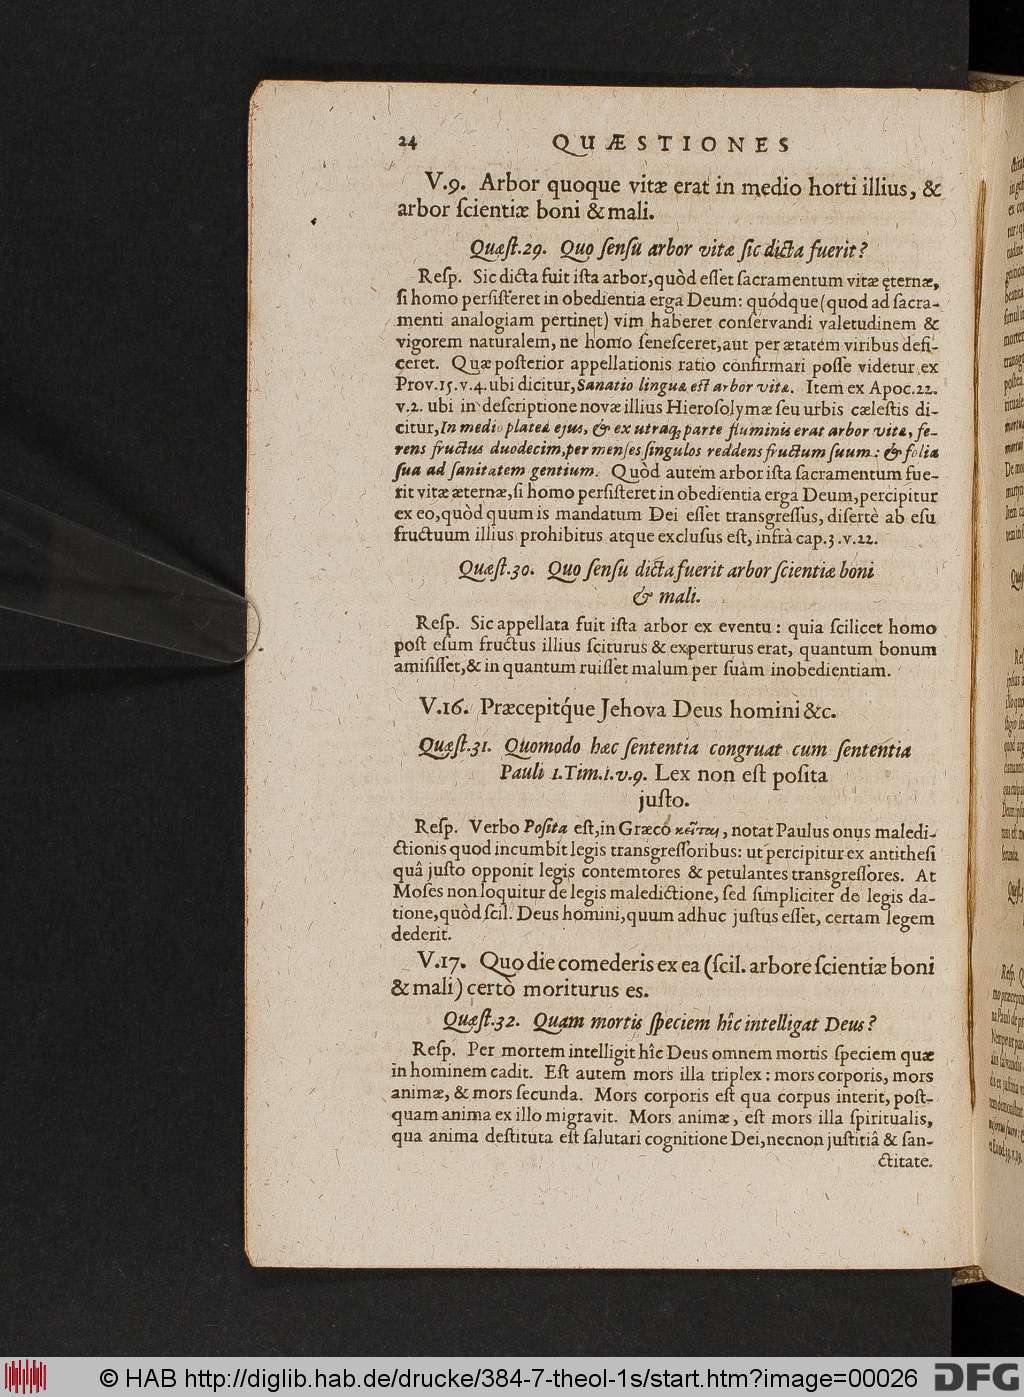 24 QUÆSTIONES
V.9. Arbor quoque vitæ erat in medio horti illius, &
arbor ſcientiæ boni & mali.
Quæſt.29. Quo ſenſu arbor vitæ ſic dicta fuerit?
Reſp. Sic dicta fuit iſta arbor, quòd eſſet ſacramentum vitæ ęternæ,
ſi homo perſiſteret in obedientia erga Deum: quódque (quod ad ſacra-
menti analogiam pertinet) vim haberet conſervandi valetudinem &
vigorem naturalem, ne homo ſeneſceret, aut per ætatem viribus defi-
ceret. Quæ poſterior appellationis ratio confirmari poſſe videtur ex
Prov.15.v.4. ubi dicitur, Sanatio linguæ eſt arbor vitæ. Item ex Apoc.22.
v.2. ubi in deſcriptione novæ illius Hieroſolymæ ſeu urbis cæleſtis di-
citur, In medio plateæ ejus, & ex utraq; parte fluminis erat arbor vitæ, fe-
rens fructus duodecim, per menſes ſingulos reddens fructum ſuum: & folia
ſua ad ſanitatem gentium. Quòd autem arbor iſta ſacramentum fue-
rit vitæ æternæ, ſi homo perſiſteret in obedientia erga Deum, percipitur
ex eo, quòd quum is mandatum Dei eſſet transgreſſus, diſertè ab eſu
fructuum illius prohibitus atque excluſus eſt, infrà cap.3.v.22.
Quæſt.30. Quo ſenſu dicta fuerit arbor ſcientiæ boni
& mali.
Reſp. Sic appellata fuit iſta arbor ex eventu: quia ſcilicet homo
poſt eſum fructus illius ſciturus & experturus erat, quantum bonum
amiſiſſet, & in quantum ruiſſet malum per ſuàm inobedientiam.
V.16. Præcepitq́ue Jehova Deus homini &c.
Quæſt.31. Quomodo hæc ſententia congruat cum ſententia
Pauli 1.Tim.1.v.9. Lex non eſt poſita
juſto.
Reſp. Verbo Poſita eſt, in Græco κεῖται, notat Paulus onus maledi-
ctionis quod incumbit legis transgreſſoribus: ut percipitur ex antitheſi
quâ juſto opponit legis contemtores & petulantes transgreſſores. At
Moſes non loquitur de legis maledictione, ſed ſimpliciter de legis da-
tione, quòd ſcil. Deus homini, quum adhuc juſtus eſſet, certam legem
dederit.
V.17. Quo die comederis ex ea (ſcil. arbore ſcientiæ boni
& mali) certò moriturus es.
Quæſt.32. Quam mortis ſpeciem hîc intelligat Deus?
Reſp. Per mortem intelligit hîc Deus omnem mortis ſpeciem quæ
in hominem cadit. Eſt autem mors illa triplex: mors corporis, mors
animæ, & mors ſecunda. Mors corporis eſt qua corpus interit, poſt-
quam anima ex illo migravit. Mors animæ, eſt mors illa ſpiritualis,
qua anima deſtituta eſt ſalutari cognitione Dei, necnon juſtitiâ & ſan-
ctitate.
© HAB http://diglib.hab.de/drucke/384-7-theol-1s/start.htm?image=00026
DFG